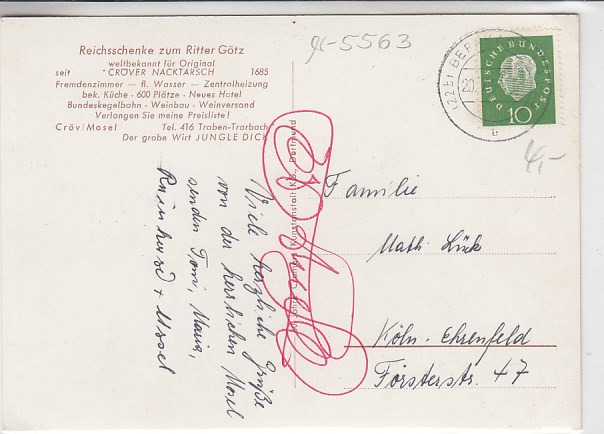 Reichsschenke zum Ritter Götz
weltbekannt für Original
seit CRÖVER NACKTARSCH 1685
Fremdenzimmer — fl. Wasser — Zentralheizung
bek. Küche - 600 Plätze - Neues Hotel
Bundeskegelbahn - Weinbau - Weinversand
Verlangen Sie meine Preisliste!
Cröv/Mosel Tel. 416 Traben-Trarbach
Der grobe Wirt JUNGLE DICK
Viele herzliche Grüße
von der herrlichen Mosel
senden Toni, Maria,
Reinhard + Ursel
Kunstanstalt K.G., Dortmund
x-5563
(22b) BER
20.
DEUTSCHE BUNDESPOST
10
4,-
Familie
Math. Lück
Köln-Ehrenfeld
Försterstr. 47